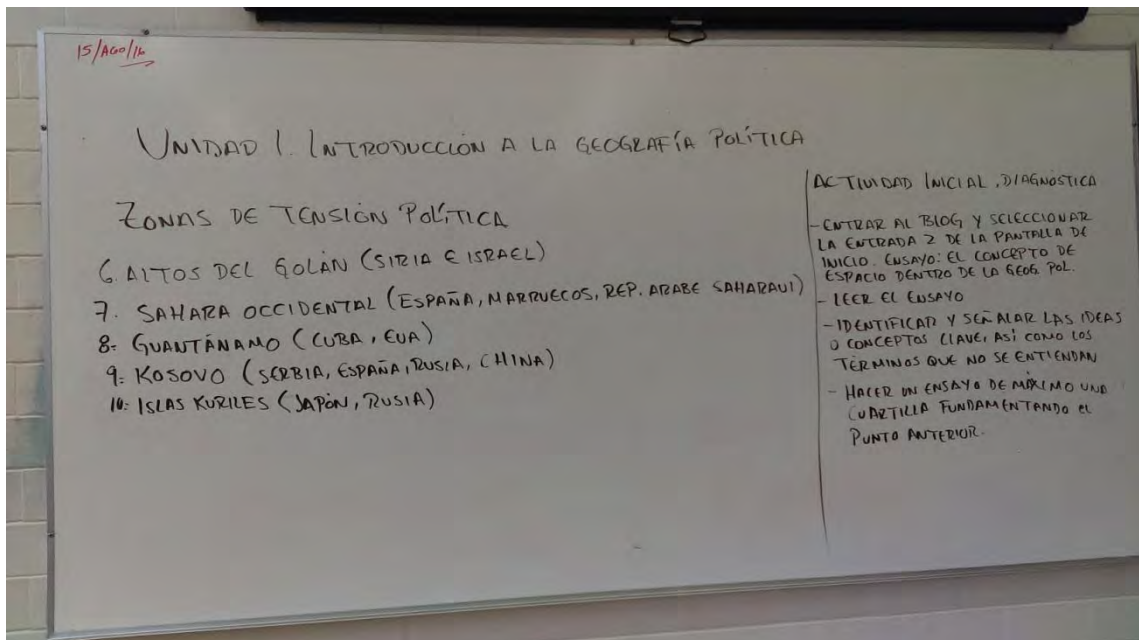 15/AGO/16
UNIDAD 1. INTRODUCCIÓN A LA GEOGRAFÍA POLÍTICA
ZONAS DE TENSIÓN POLÍTICA
6. ALTOS DEL GOLÁN (SIRIA E ISRAEL)
7. SAHARA OCCIDENTAL (ESPAÑA, MARRUECOS, REP. ARABE SAHARAUI)
8. GUANTÁNAMO (CUBA, EUA)
9. KOSOVO (SERBIA, ESPAÑA, RUSIA, CHINA)
10. ISLAS KURILES (JAPÓN, RUSIA)
ACTIVIDAD INICIAL. DIAGNÓSTICA
- ENTRAR AL BLOG Y SELECCIONAR
LA ENTRADA 2 DE LA PANTALLA DE
INICIO. ENSAYO: EL CONCEPTO DE
ESPACIO DENTRO DE LA GEOG. POL.
- LEER EL ENSAYO
- IDENTIFICAR Y SEÑALAR LAS IDEAS
O CONCEPTOS CLAVE, ASÍ COMO LOS
TÉRMINOS QUE NO SE ENTIENDAN
- HACER UN ENSAYO DE MÁXIMO UNA
CUARTILLA FUNDAMENTANDO EL
PUNTO ANTERIOR.